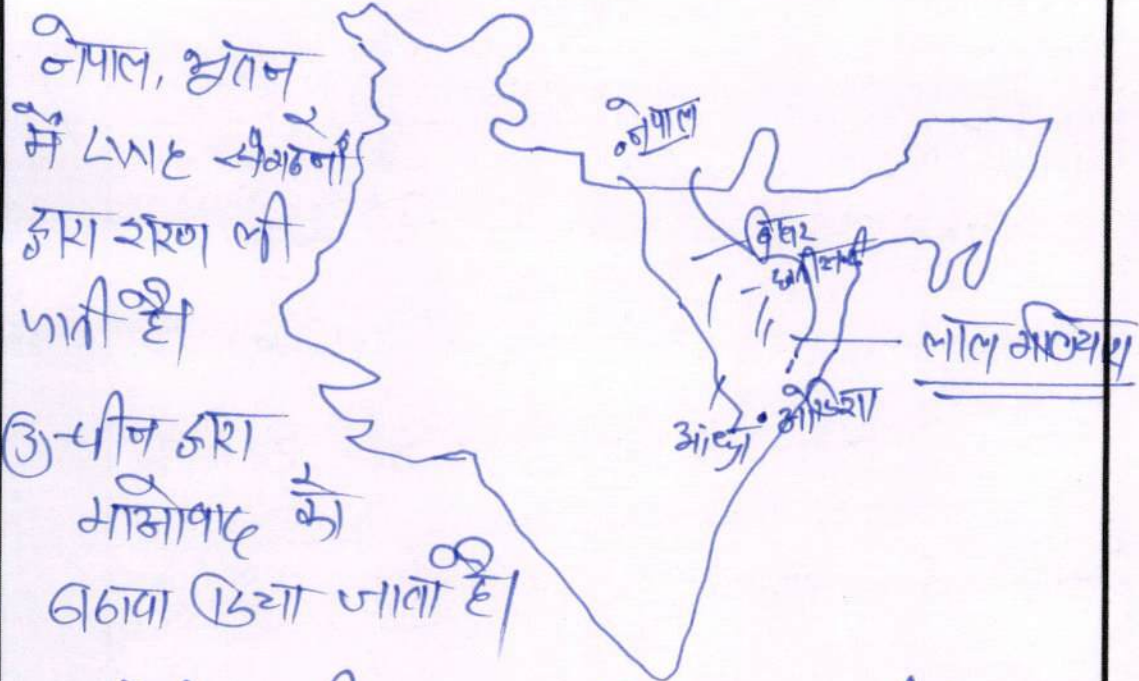 नेपाल, भूतान
में संगठनों
द्वारा शरण ली
जाती है।
③ चीन द्वारा
माओवाद को
बढावा दिया जाता है।
नेपाल
बिहार
छत्तीसगढ़
लाल गलियारा
आंध्र
ओडिशा